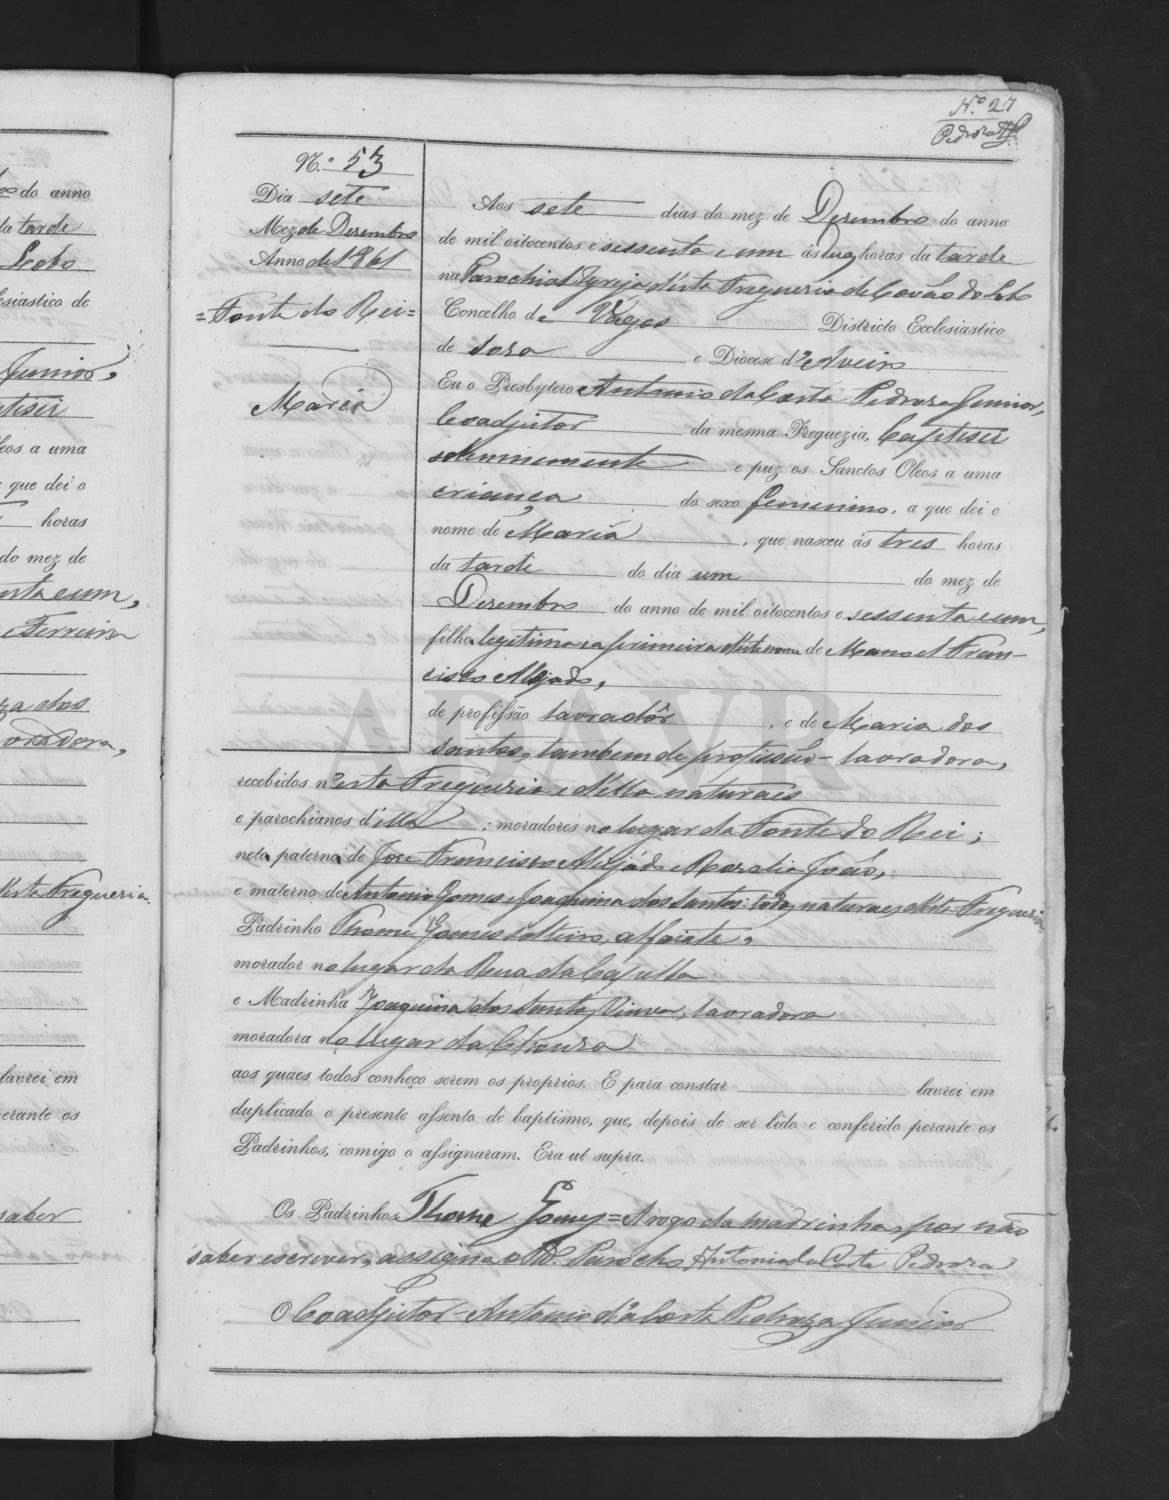 N.º 27
Pedroza
do anno
da tarde
Lobo
esiastico de
Junior,
eos a uma
que dei o
horas
do mez de
enta e um,
Ferreira
za dos
oradora,
d'esta Freguezia.
lavrei em
erante os
saber
N.º 53
Dia sete
Mez de Dezembro
Anno de 1861
= Fonte do Rei =
Maria
Aos sete dias do mez de Dezembro do anno
de mil oitocentos e sessenta e um ás duas horas da tarde
na Parochial Igreja d'esta Freguezia de Covão do Lobo
Concelho de Vagos Districto Ecclesiastico
de Soza e Diocese d'e Aveiro
Eu o Presbytero Antonio da Costa Pedroza Junior,
Coadjutor da mesma Freguezia, baptisei
solemnemente e puz os Sanctos Oleos a uma
criança do sexo femenino, a que dei o
nome de Maria, que nasceu ás tres horas
da tarde do dia um do mez de
Dezembro do anno de mil oitocentos e sessenta e um,
filha legitima e a primeira d'este nome de Manoel Fran-
cisco Mujado,
de profissão lavradôr, e de Maria dos
Santos, tambem de profissão - lavradora,
recebidos n'esta Freguezia e d'ella naturaes
e parochianos d'ella; moradores no lugar da Fonte do Rei;
neta paterna de Joze Francisco Mujado e Rozalia João,
e materna de Antonio Gomes e Joaquina dos Santos: todos naturaes d'esta Freguezia.
Padrinho Thomé Gomes solteiro, alfaiate,
morador no lugar da Rua da Capella
e Madrinha Joaquina dos Santos, Viuva, lavradora
moradora no lugar da Chouza
aos quaes todos conheço serem os proprios. E para constar lavrei em
duplicado o presente assento de baptismo, que, depois de ser lido e conferido perante os
Padrinhos, comigo o assignaram. Era ut supra.
Os Padrinhos, Thome Gomes = A rogo da madrinha, por não
saber escrever, assigna o Rd. Parocho Antonio da Costa Pedroza
O Coadjutor - Antonio d'a Costa Pedroza Junior
ADAVR